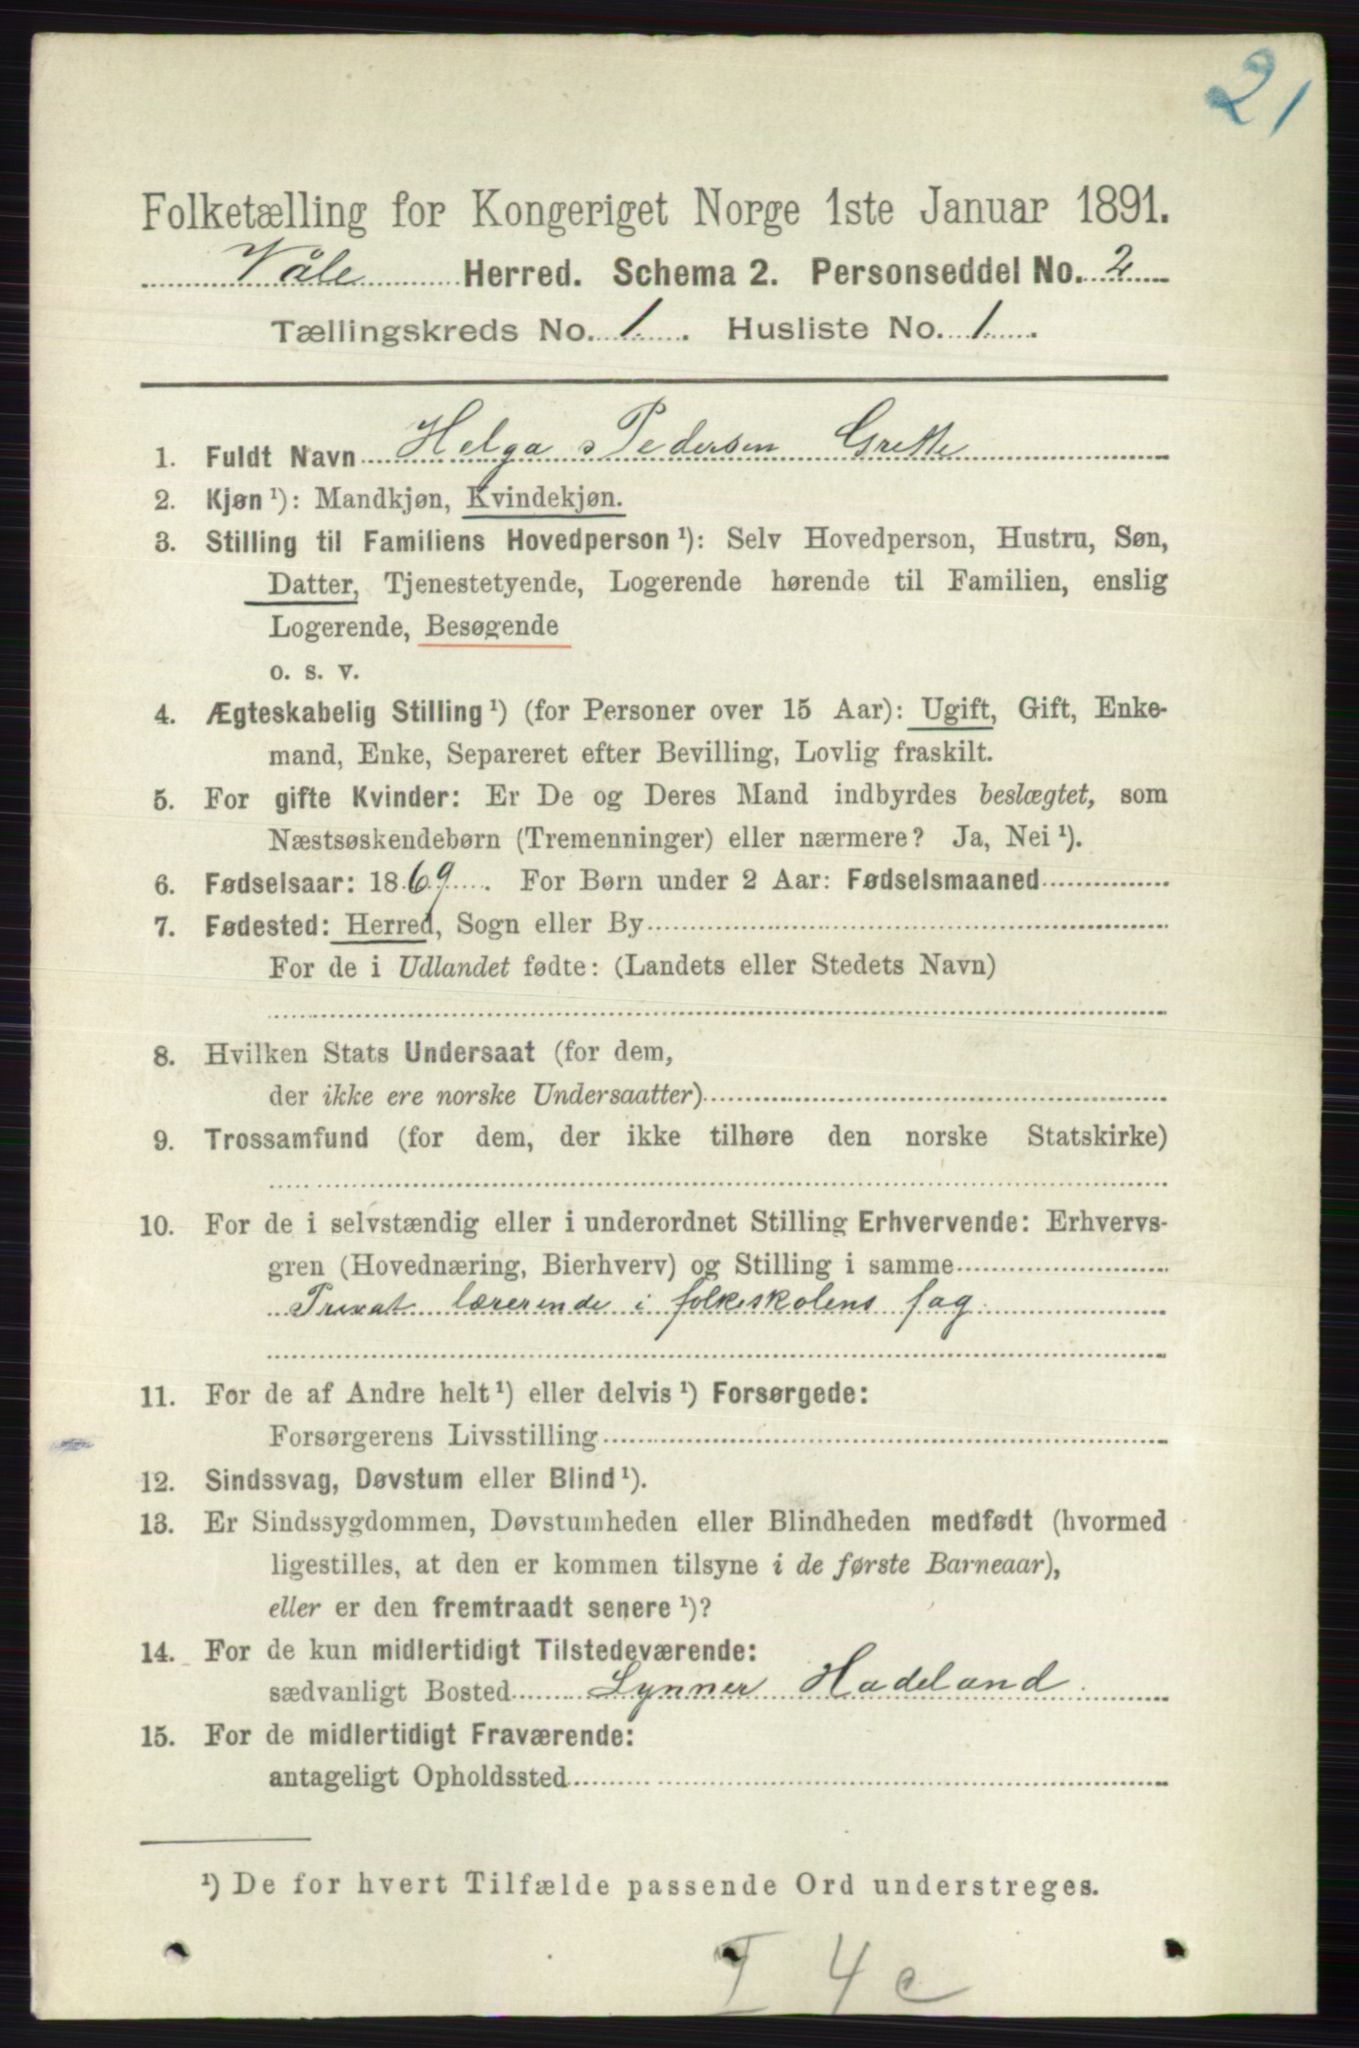 21
Folketælling for Kongeriget Norge 1ste Januar 1891.
Våle Herred. Schema 2. Personseddel No. 2
Tællingskreds No. 1. Husliste No. 1.
1. Fuldt Navn Helga Pedersen Grette
2. Kjøn ¹): Mandkjøn, Kvindekjøn.
3. Stilling til Familiens Hovedperson ¹): Selv Hovedperson, Hustru, Søn,
Datter, Tjenestetyende, Logerende hørende til Familien, enslig
Logerende, Besøgende
o. s. v.
4. Ægteskabelig Stilling ¹) (for Personer over 15 Aar): Ugift, Gift, Enke-
mand, Enke, Separeret efter Bevilling, Lovlig fraskilt.
5. For gifte Kvinder: Er De og Deres Mand indbyrdes beslægtet, som
Næstsøskendebørn (Tremenninger) eller nærmere? Ja, Nei ¹).
6. Fødselsaar: 1869. For Børn under 2 Aar: Fødselsmaaned
7. Fødested: Herred, Sogn eller By
For de i Udlandet fødte: (Landets eller Stedets Navn)
8. Hvilken Stats Undersaat (for dem,
der ikke ere norske Undersaatter)
9. Trossamfund (for dem, der ikke tilhøre den norske Statskirke)
10. For de i selvstændig eller i underordnet Stilling Erhvervende: Erhvervs-
gren (Hovednæring, Bierhverv) og Stilling i samme
Privat lærerinde i folkeskolens fag.
11. For de af Andre helt ¹) eller delvis ¹) Forsørgede:
Forsørgerens Livsstilling
12. Sindssvag, Døvstum eller Blind ¹).
13. Er Sindssygdommen, Døvstumheden eller Blindheden medfødt (hvormed
ligestilles, at den er kommen tilsyne i de første Barneaar),
eller er den fremtraadt senere ¹)?
14. For de kun midlertidigt Tilstedeværende:
sædvanligt Bosted Lynner Hadeland
15. For de midlertidigt Fraværende:
antageligt Opholdssted
¹) De for hvert Tilfælde passende Ord understreges.
I 4 c